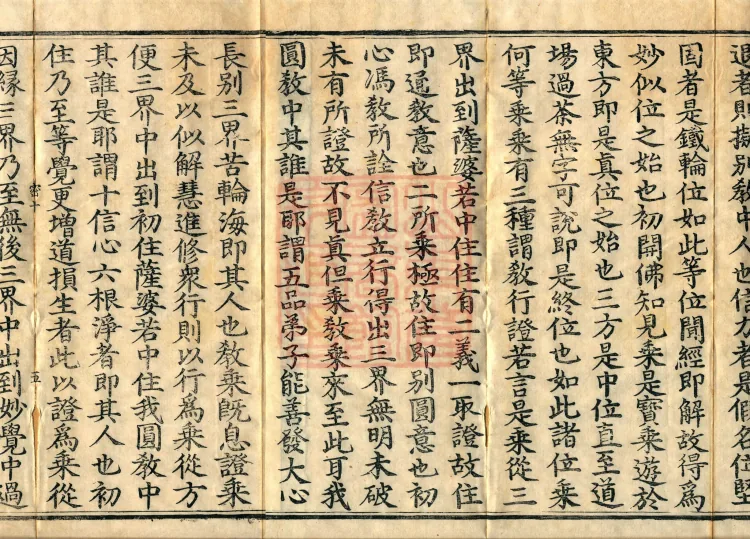 者則擬別教中人也信者是假名位堅
固者是鐵輪位如此等位聞經即解故得爲
妙似位之始也初開佛知見乘是寶乘遊於
東方即是真位之始也三方是中位直至道
場過茶無字可說即是終位也如此諸位乘
何等乘乘有三種謂教行證若言是乘從三
界出到薩婆若中住住有二義一取證故住
即通教意也二所乘極故住即別圓意也初
心馮教所詮信教立行得出三界無明未破
未有所證故不見真但乘教乘來至此耳我
圓教中其誰是耶謂五品弟子能善發大心
長別三界苦輪海即其人也教乘既息證乘
未及以似解慧進修衆行則以行爲乘從方
便三界中出到初住薩婆若中住我圓教中
其誰是耶謂十信心六根淨者即其人也初
住乃至等覺更增道損生者此以證爲乘從
因緣三界乃至無後三界中出到妙覺中過
五